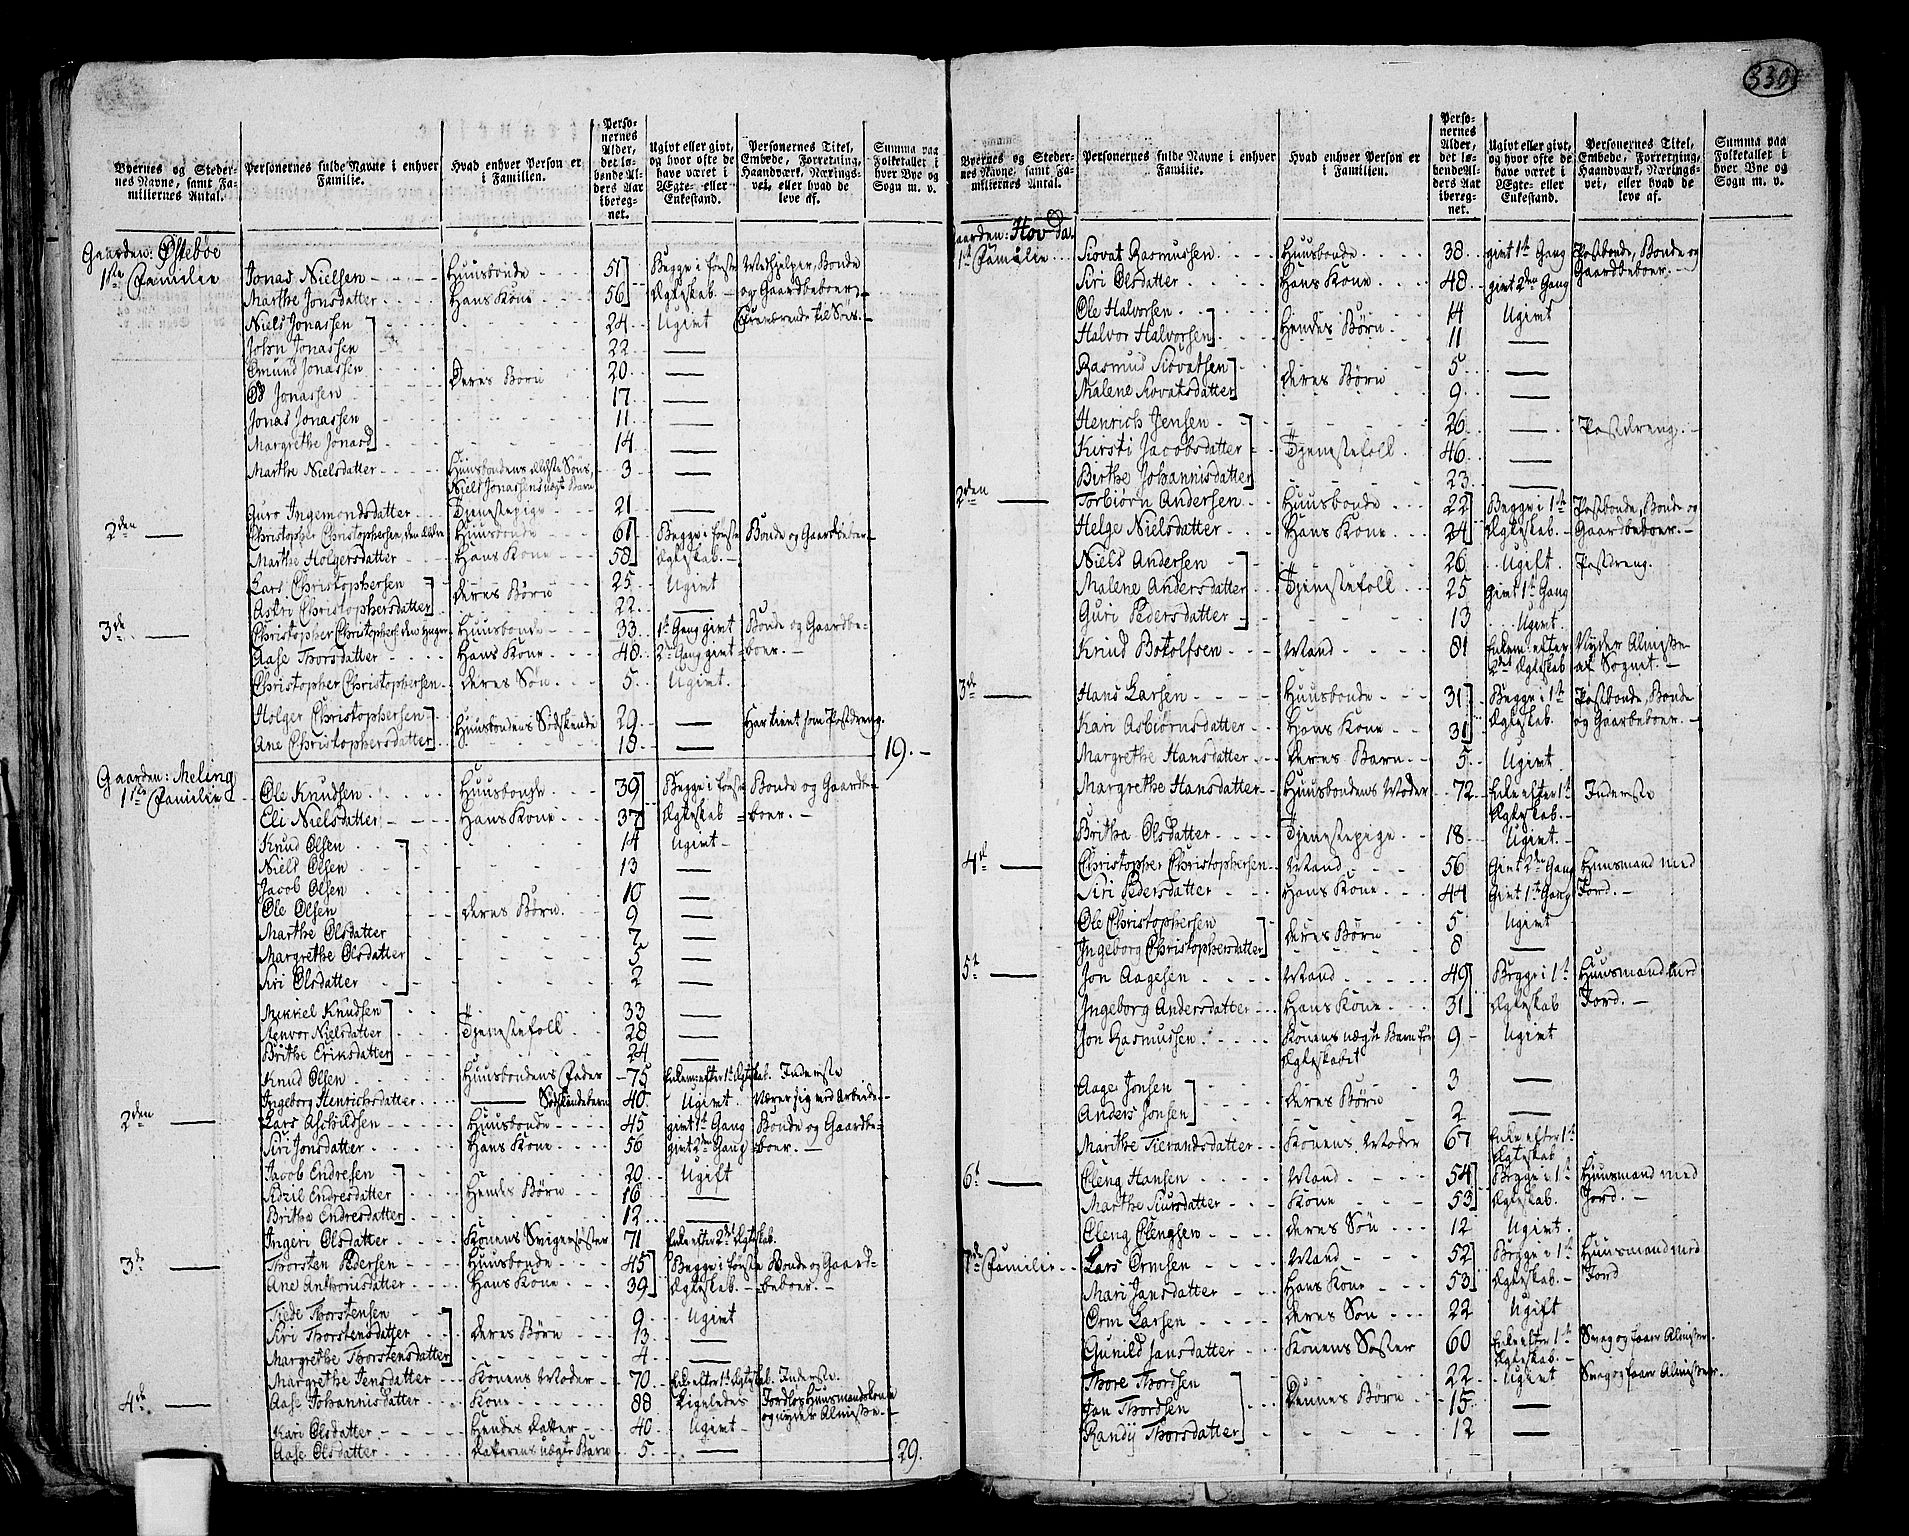 Byernes og Stedernes Navne, samt Familiernes Antal. | Personernes fulde Navne i enhver Familie. | Hvad enhver Person er i Familien. | Personernes Alder, det løbende Alders Aar iberegnet. | Ugivt eller givt, og hvor ofte de have været i Ægte- eller Enkestand. | Personernes Titel, Embede, Forretning, Haandværk, Næringsvei, eller hvad de leve af. | Summa paa Folketallet i hver Bye og Sogn m. v.
Gaarden: Østebøe
1ste Familie Jonas Nielsen Huusbonde 51 Begge i første Medhjelper, Bonde
Marthe Jonsdatter Hans Kone 56 Ægteskab og Gaardbeboer
Niels Jonassen 24 Ugivt til Søes
John Jonassen 22
Omund Jonassen 20
Deres Børn
Jonassen 17
Jonas Jonassen 11
Margrethe Jonasd 14
Marthe Nielsdatter Huusbondens ældste Søns, Niels Jonassens uægte Barn 3
Guro Ingemondsdatter Tjenestepige 21
2den Christopher Christophersen, den ældre Huusbonde 61 Begge i første Bonde og Gaardbeboer
Marthe Holgersdatter Hans Kone 58 Ægteskab
Lars Christophersen 25 Ugivt
Deres Børn
Astri Christophersdatter 22
3de Christopher Christophers den Yngre Huusbonde 33 1te Gang givt Bonde og Gaardbe-
Aase Thorsdatter Hans Kone 48 2den Gang givt boer
Christopher Christophersen Deres Søn 5 Ugivt
Holger Christophersen Huusbondens Sødskende 29 Har tient som Postdreng
Ane Christophersdatter 18 19.
Gaarden: Meling
1ste Familie Ole Knudsen Huusbonde 39 Begge i første Bonde og Gaardbe-
Eli Nielsdatter Hans Kone 37 Ægteskab boer
Knud Olsen 14 Ugivt
Niels Olsen 13
Jacob Olsen 10
Ole Olsen Deres Børn 9
Marthe Olsdatter 7
Margrethe Olsdatter 5
Siri Olsdatter 2
Mikkel Knudsen 33
Aenvor Nielsdatter Tjenestefolk 28
Brithe Eriksdatter 24
Knud Olsen Huusbondens Fader 75 Enkem: efter 1te Ægtskab. Inderste
Ingeborg Henrichsdatter Sødskendebarn 40 Ugivt Nærer sig ved Arbeide
2den Lars Aschildsen Huusbonde 45 givt 1te Gang Bonde og Gaardbe-
Siri Jonsdatter Hans Kone 56 givt 2den Gang boer
Jacob Endresen 20 Ugift
Sidzil Endresdatter Hendes Børn 16
Britha Endresdatter 12
Ingeri Olsdatter Konens Svigersøster 71 Enke efter 2det Ægteskab.
3de Thorsten Pedersen Huusbonde 45 Begge i første Bonde og Gaard-
Ane Anthonisdatter Hans Kone 39 Ægteskab beboer
Tiede Thorstensen 9 Ugivt
Siri Thorstensdatter Deres Børn 13
Margrethe Thorstensdatter 4
Margrethe Jensdatter Konens Moder 70 Enke efter 1te Ægtskab. Inderste
4de Aase Johannisdatter Kone 88 Ligeledes Jordløs Huusmandskone og nyder Almisse
Kari Olsdatter Hendes Datter 40 Ugivt
Aase Olsdatter Datterens uægte Barn 5 29.
339
Byernes og Stedernes Navne, samt Familiernes Antal. | Personernes fulde Navne i enhver Familie. | Hvad enhver Person er i Familien. | Personernes Alder, det løbende Alders Aar iberegnet. | Ugivt eller givt, og hvor ofte de have været i Ægte- eller Enkestand. | Personernes Titel, Embede, Forretning, Haandværk, Næringsvei, eller hvad de leve af. | Summa paa Folketallet i hver Bye og Sogn m. v.
Gaarden: Hovda
1te Familie Siovat Rasmussen Huusbonde 38 givt 1te Gang Postbonde, Bonde og
Siri Olsdatter Hans Kone 48 givt 2den Gang Gaardbeboer
Ole Halvorsen 14 Ugivt
Hendes Børn
Halvor Halvorsen 11
Rasmus Siovatsen 5
Deres Børn
Malene Siovatsdatter 9
Henrich Jensen 26 Postdreng
Kirsti Jacobsdatter Tjenestefolk 46
Birthe Johannisdatter 23
2den Torbiørn Andersen Huusbonde 22 Begge i 1te Postbonde, Bonde og
Helge Nielsdatter Hans Kone 24 Ægteskab Gaardbeboer
Niels Andersen 26 Ugift Postdreng
Malene Andersdatter Tjenestefolk 25 givt 1te Gang
Guri Pedersdatter 13 Ugivt
Knud Botolfsen Mand 81 Enkem: efter 2det Ægteskab Nyder Almisse af Sognet
3de Hans Larsen Huusbonde 31 Begge i 1te Postbonde, Bonde
Kari Asbiørnsdatter Hans Kone 31 Ægteskab og Gaarbeboer
Margrethe Hansdatter Deres Barn 5 Ugivt
Margrethe Hansdatter Huusbondens Moder 72 Enke efter 1te Ægteskab Inderste
Britha Olsdatter Tjenestepige 18 Ugivt
4de Christopher Christophersen Mand 56 Givt 2den Gang Huusmand med
Siri Pedersdatter Hans Kone 44 Givt 1te Gang Jord
Ole Christophersen 5 Ugivt
Deres Børn
Ingeborg Christophersdatter 8
5te Jon Aagesen Mand 49 Begge i 1te Huusmand med
Ingeborg Andersdatter Hans Kone 31 Ægteskab Jord
Jon Rasmussen Konens uægte Barn før Ægteskabet 9 Ugivt
Aage Jonsen 3
Deres Børn
Anders Jonsen 2
Marithe Tierandsdatter Konens Moder 67 Enke efter 1te Ægteskab
6te Eleng Hansen Mand 54 Begge i 1te Huusmand med
Marthe Siursdatter Kone 53 Ægteskab Jord
Eleng Elengsen Deres Søn 12 Ugivt
7de Familie Lars Ormsen Mand 52 Begge i 1te Huusmand med
Mari Jansdatter Hans Kone 53 Ægteskab Jord
Orm Larsen Deres Søn 22 Ugift
Gunild Jansdatter Konens Søster 60 Enke efter 1te Ægteskab Svag og faaer Almisse
Thore Thordsen 22 Ugivt Svag og faaer Almisse
Jan Thordsen Dennes Børn 15
Randij Thorsdatter 12